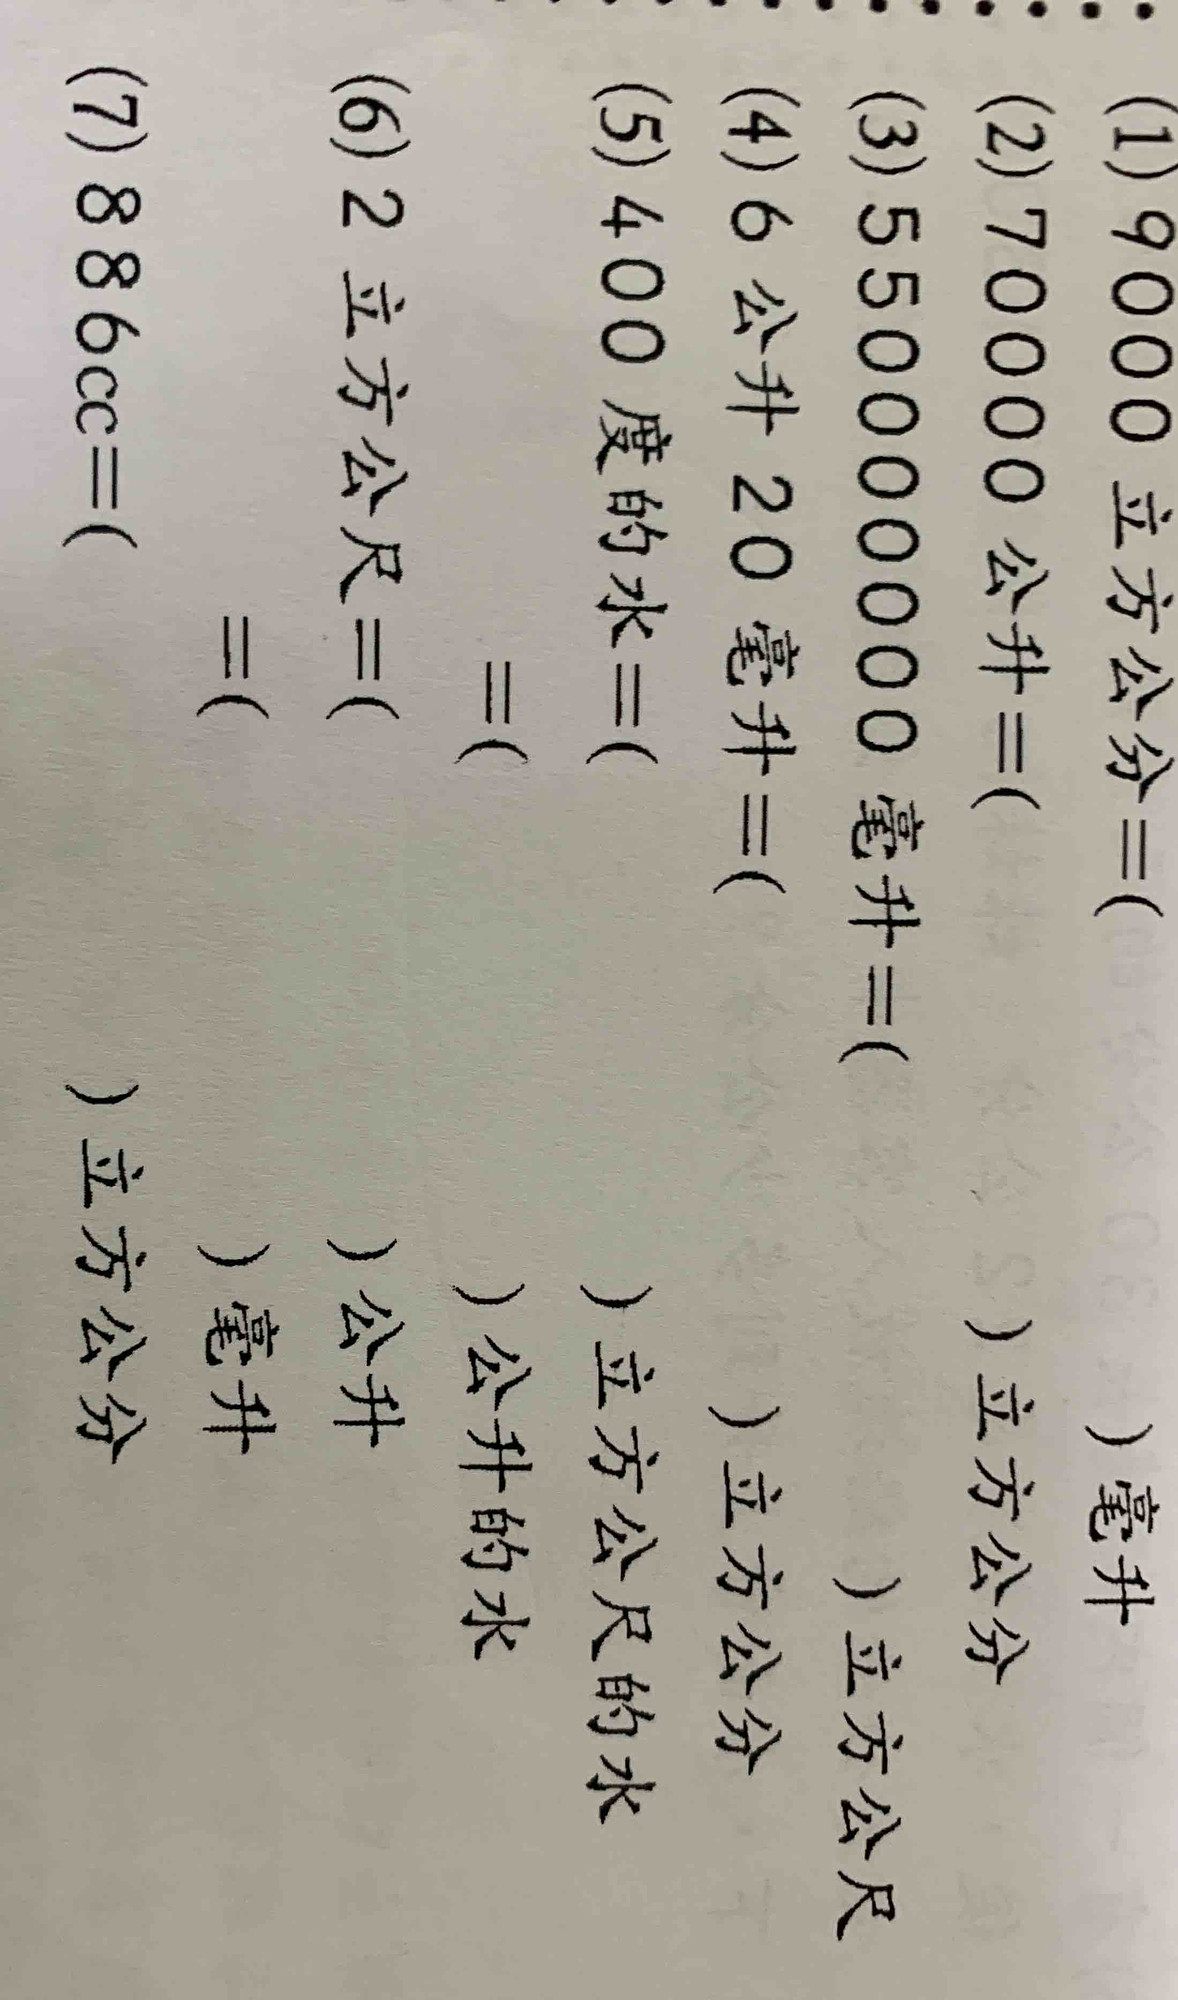 (1) 9000 立方公分=( )毫升
(2) 70000 公升=( )立方公分
(3) 550000000 毫升=( )立方公尺
(4) 6 公升 20 毫升=( )立方公分
(5) 400 度的水=( )立方公尺的水
=( )公升的水
(6) 2 立方公尺=( )公升
=( )毫升
(7) 886cc=( )立方公分